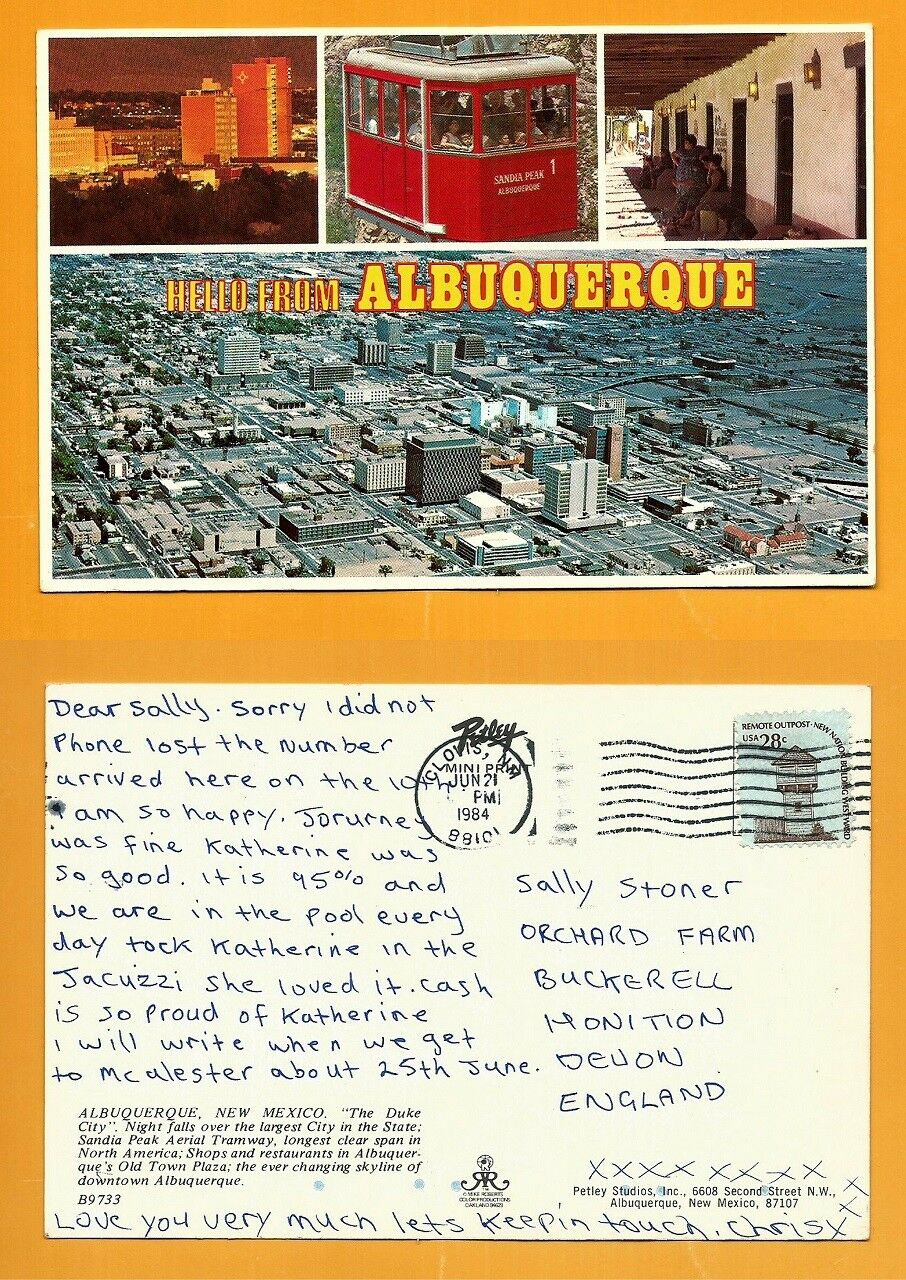 SANDIA PEAK 1
ALBUQUERQUE
HELLO FROM ALBUQUERQUE
Dear Sally. Sorry I did not
Phone lost the number
arrived here on the 10th.
I am so happy. Jorurney
was fine Katherine was
so good. It is 95% and
we are in the pool every
day tock Katherine in the
Jacuzzi she loved it. Cash
is so proud of Katherine
I will write when we get
to McAlester about 25th June.
Petley
MINI PRINT
CLOVIS, NM
JUN 21
PM
1984
88101
REMOTE OUTPOST·NEW NATION BUILDING WESTWARD
USA 28c
Sally Stoner
ORCHARD FARM
BUCKERELL
HONITION
DEVON
ENGLAND
ALBUQUERQUE, NEW MEXICO. "The Duke
City". Night falls over the largest City in the State;
Sandia Peak Aerial Tramway, longest clear span in
North America; Shops and restaurants in Albuquer-
que's Old Town Plaza; the ever changing skyline of
downtown Albuquerque.
B9733
TM
© MIKE ROBERTS
COLOR PRODUCTIONS
OAKLAND 94623
XXXX XX-XX
Petley Studios, Inc., 6608 Second Street N.W.,
Albuquerque, New Mexico, 87107
X
X
Love you very much lets keep in touch, Chris X